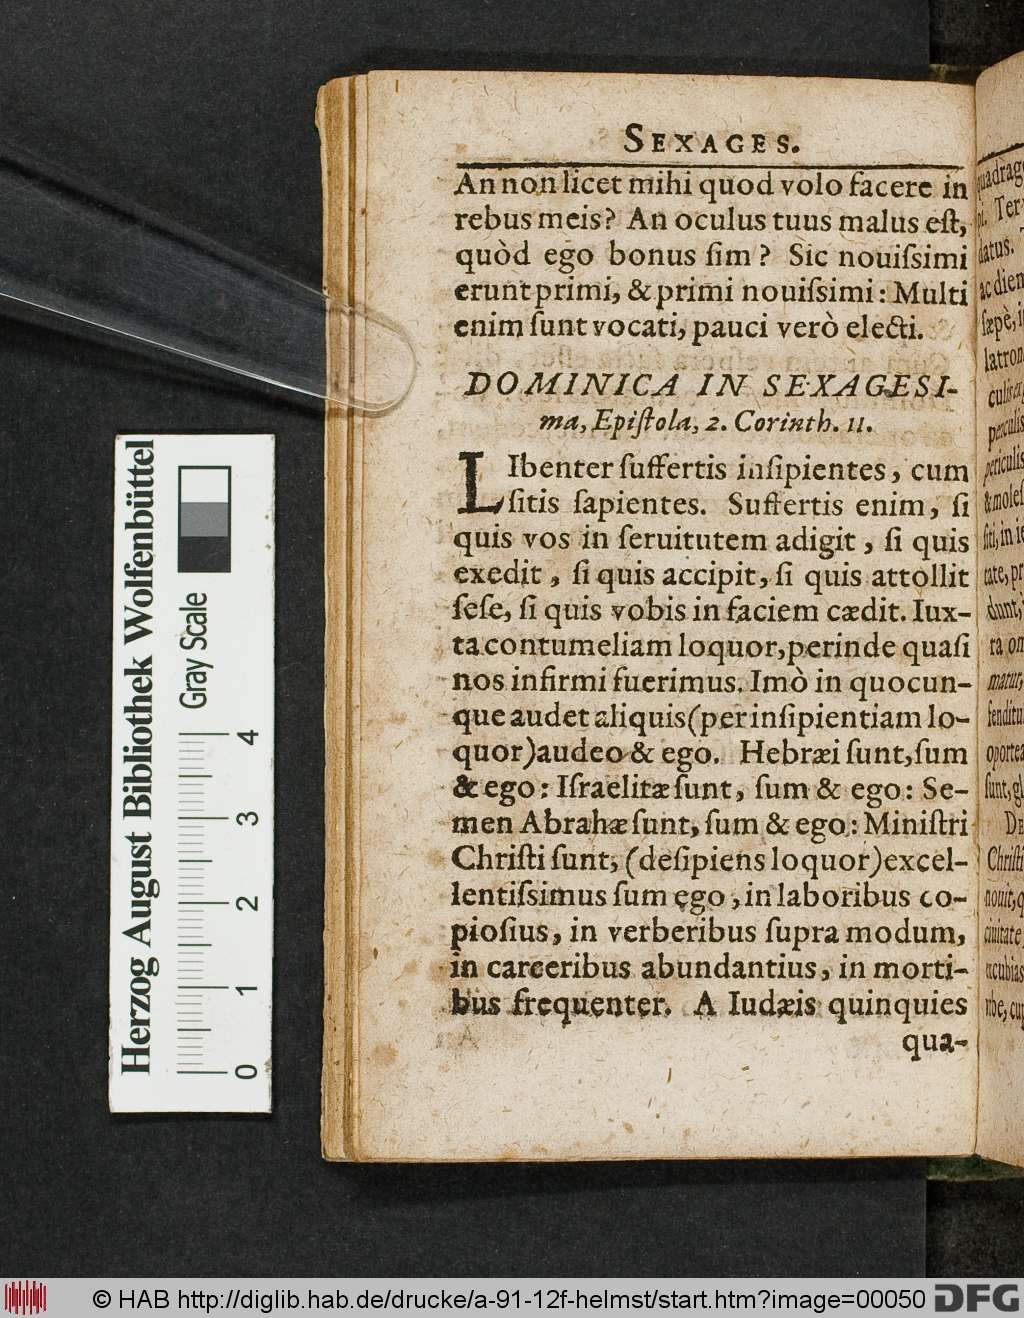 SEXAGES.
An non licet mihi quod volo facere in
rebus meis? An oculus tuus malus eſt,
quòd ego bonus ſim? Sic nouiſsimi
erunt primi, & primi nouiſsimi: Multi
enim ſunt vocati, pauci verò electi.
DOMINICA IN SEXAGESI-
ma, Epiſtola, 2. Corinth. 11.
LIbenter ſuffertis inſipientes, cum
ſitis ſapientes. Suffertis enim, ſi
quis vos in ſeruitutem adigit, ſi quis
exedit, ſi quis accipit, ſi quis attollit
ſeſe, ſi quis vobis in faciem cædit. Iux-
ta contumeliam loquor, perinde quaſi
nos infirmi fuerimus. Imò in quocun-
que audet aliquis (per inſipientiam lo-
quor) audeo & ego. Hebræi ſunt, ſum
& ego: Iſraelitæ ſunt, ſum & ego: Se-
men Abrahæ ſunt, ſum & ego: Miniſtri
Chriſti ſunt, (deſipiens loquor) excel-
lentiſsimus ſum ego, in laboribus co-
pioſius, in verberibus ſupra modum,
in carceribus abundantius, in morti-
bus frequenter. A Iudæis quinquies
qua-
quadrage
Ter
datus.
ac dien
ſæpè, i
latron
periculis
periculis
& moleſ
ſiti, in ie
tate, pr
dunt,
ra on
matur,
fenditu
oportea
ſunt, gl
DE
Chriſti
nouit, q
ciuitate
rbe, cu
Herzog August Bibliothek Wolfenbüttel
Gray Scale
0 1 2 3 4
© HAB http://diglib.hab.de/drucke/a-91-12f-helmst/start.htm?image=00050
DFG